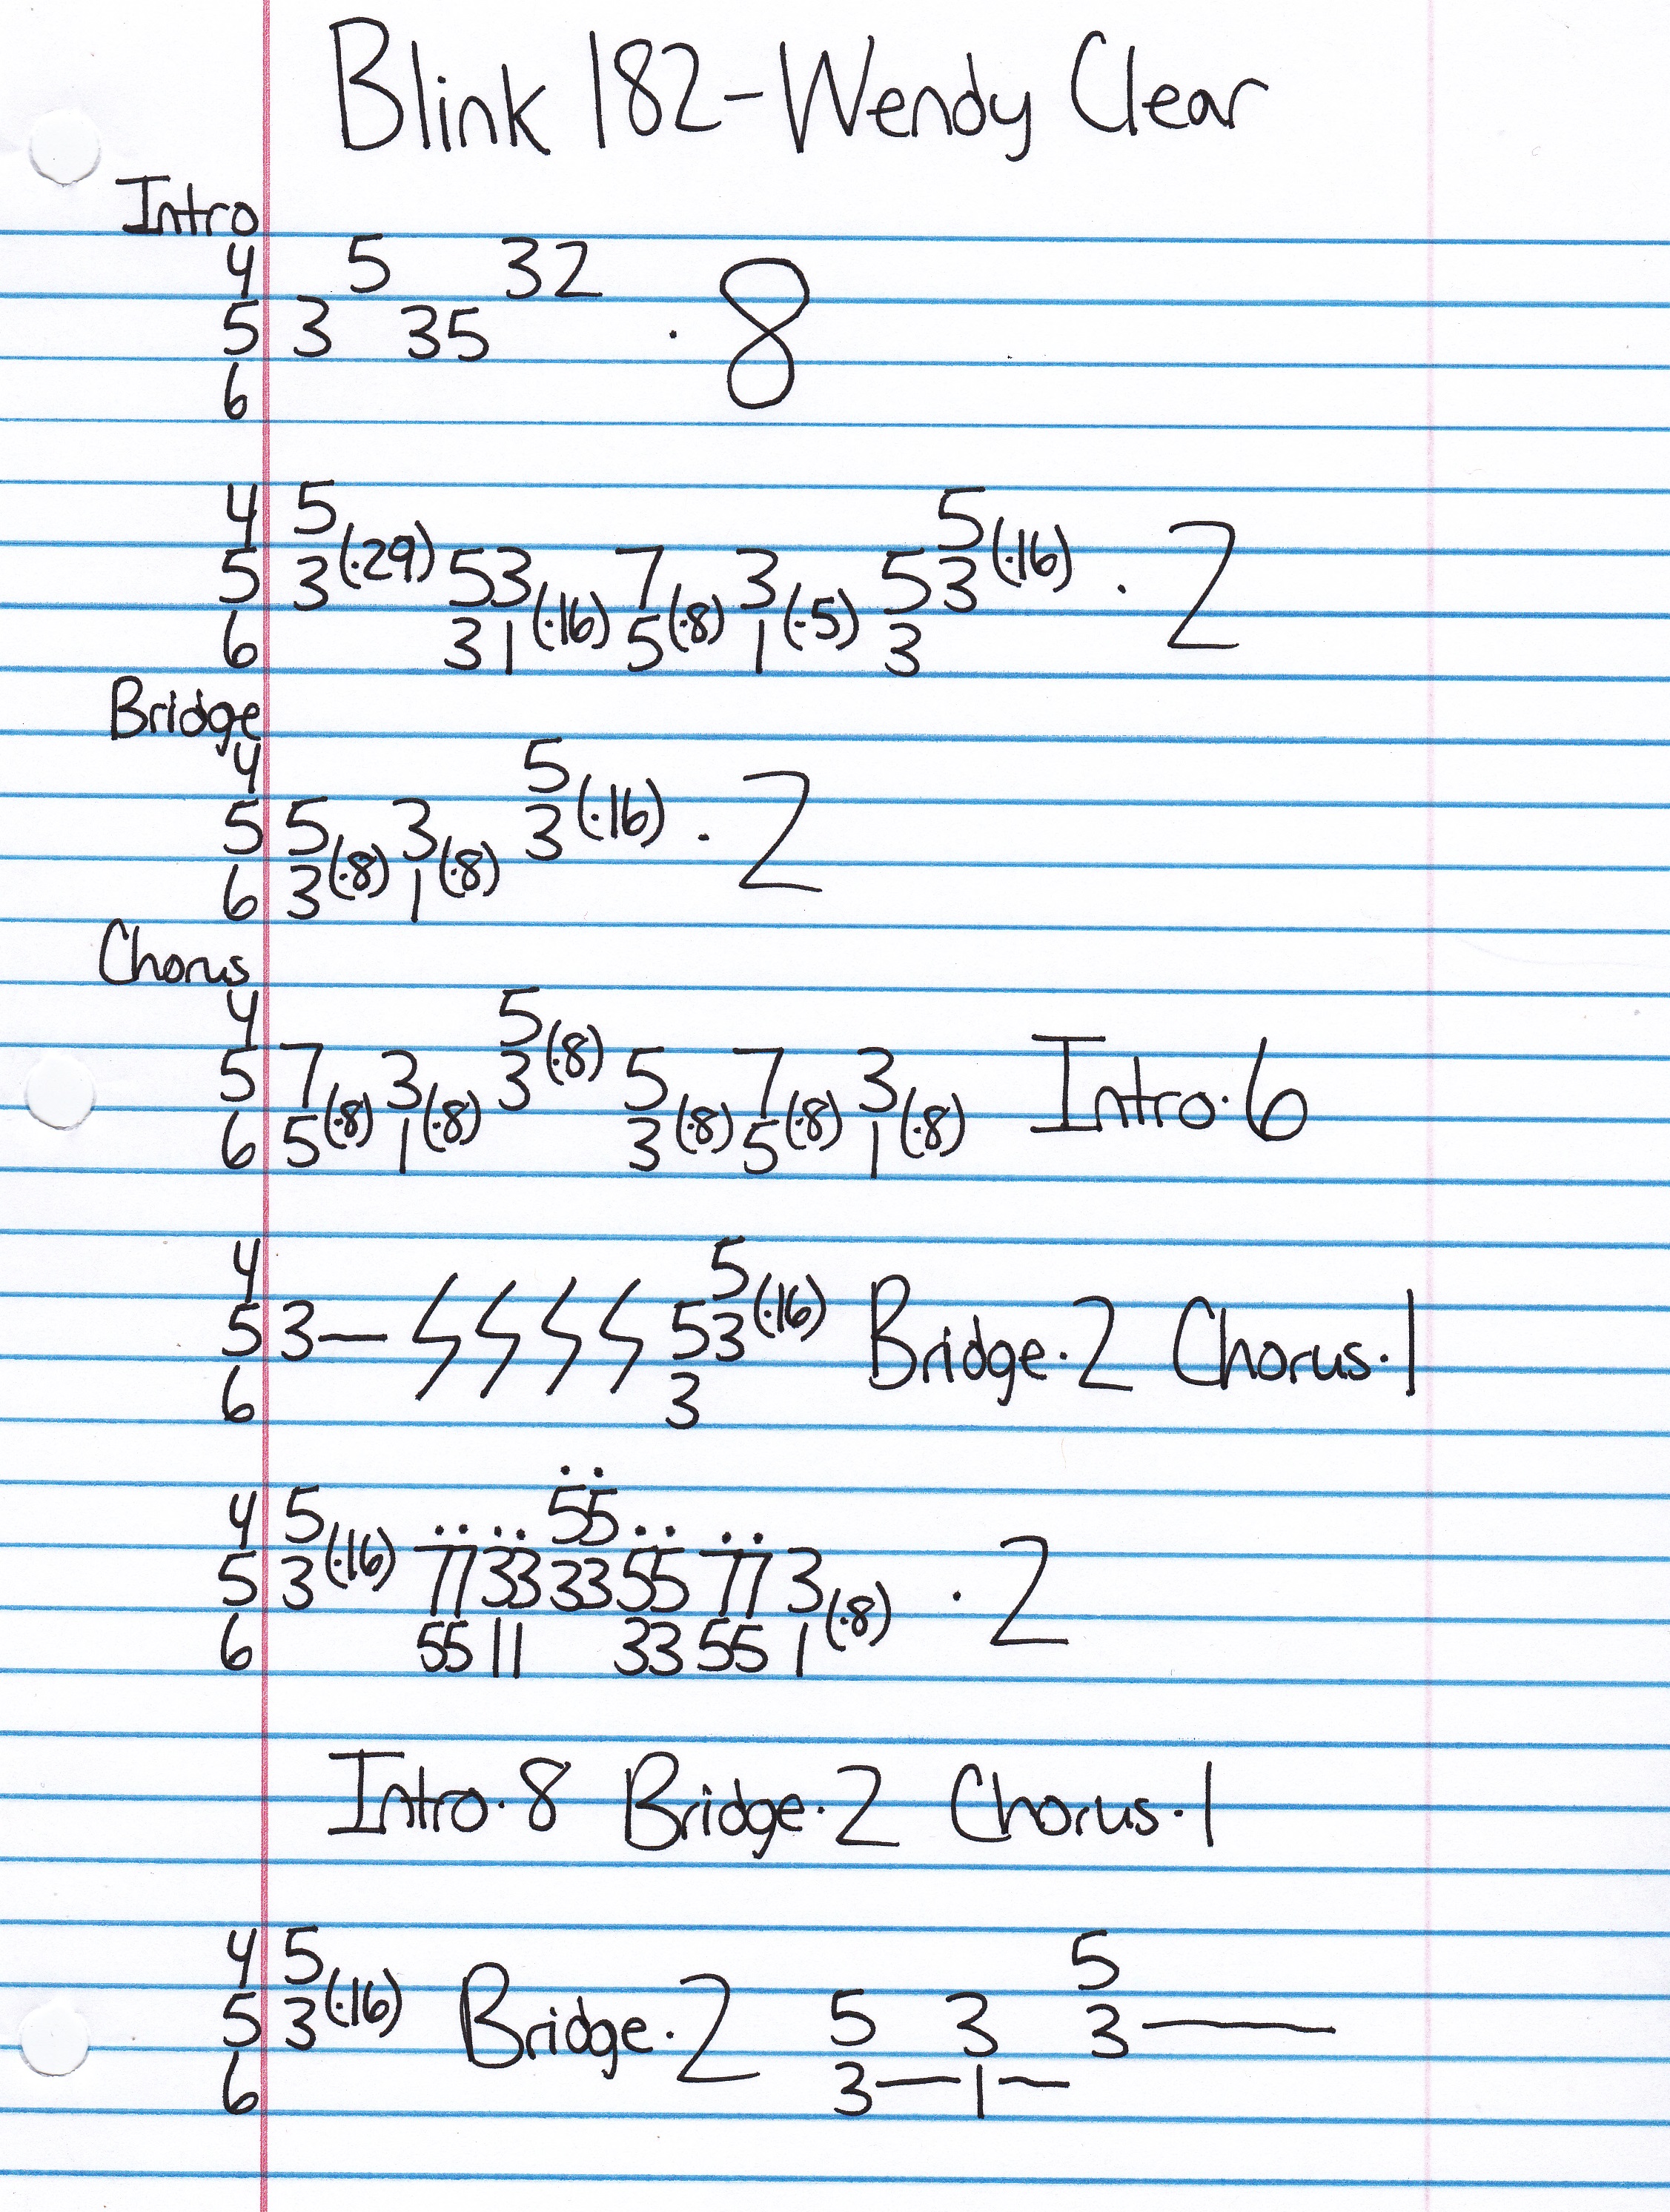 Blink 182-Wendy Clear
Intro
4 5 32
5 3 35 · 8
6
4 5 5
5 3(·29) 53 7 3 53(·16) · 2
6 31(·16) 5(·8) 1(·5) 3
Bridge
4 5
5 5 3 3(·16) · 2
6 3(·8) 1(·8)
Chorus
4 5
5 7 3 3(·8) 5 7 3 Intro·6
6 5(·8) 1(·8) 3(·8) 5(·8) 1(·8)
4 5
5 3— 53(·16) Bridge·2 Chorus·1
6 3
4 5 55
5 3(·16) 77 33 33 55 77 3 · 2
6 55 11 33 55 1(·8)
Intro·8 Bridge·2 Chorus·1
4 5 5
5 3(·16) Bridge·2 5 3 3—
6 3—1—